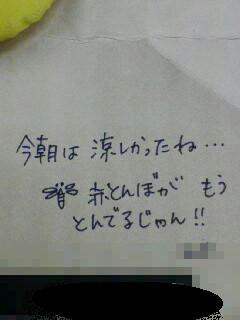 今朝は 涼しかったね…
赤とんぼが もう
とんでるじゃん!!